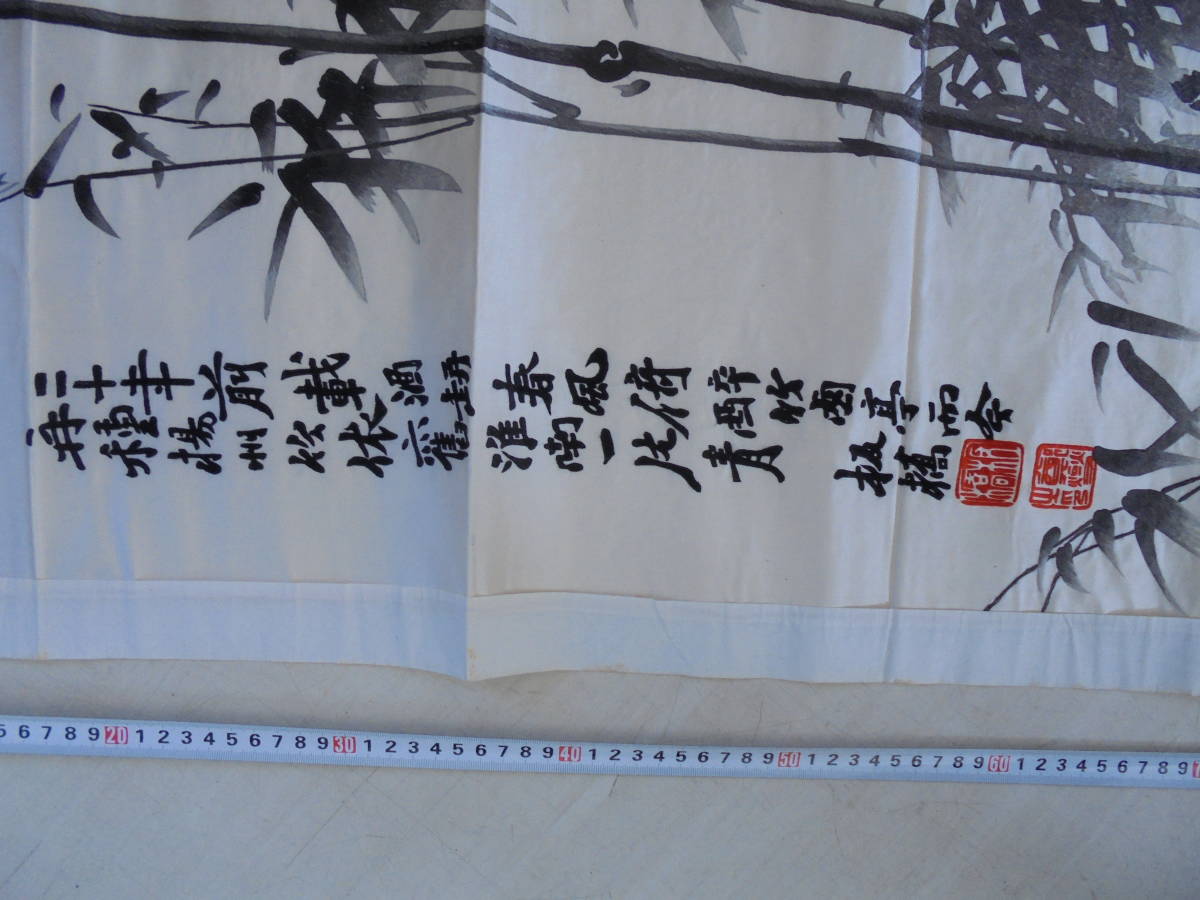 二十年前載酒缾春風倚醉竹西亭而今
再種揚州竹依舊淮南一片青
板橋
5 6 7 8 9 20 1 2 3 4 5 6 7 8 9 30 1 2 3 4 5 6 7 8 9 40 1 2 3 4 5 6 7 8 9 50 1 2 3 4 5 6 7 8 9 60 1 2 3 4 5 6 7 8 9